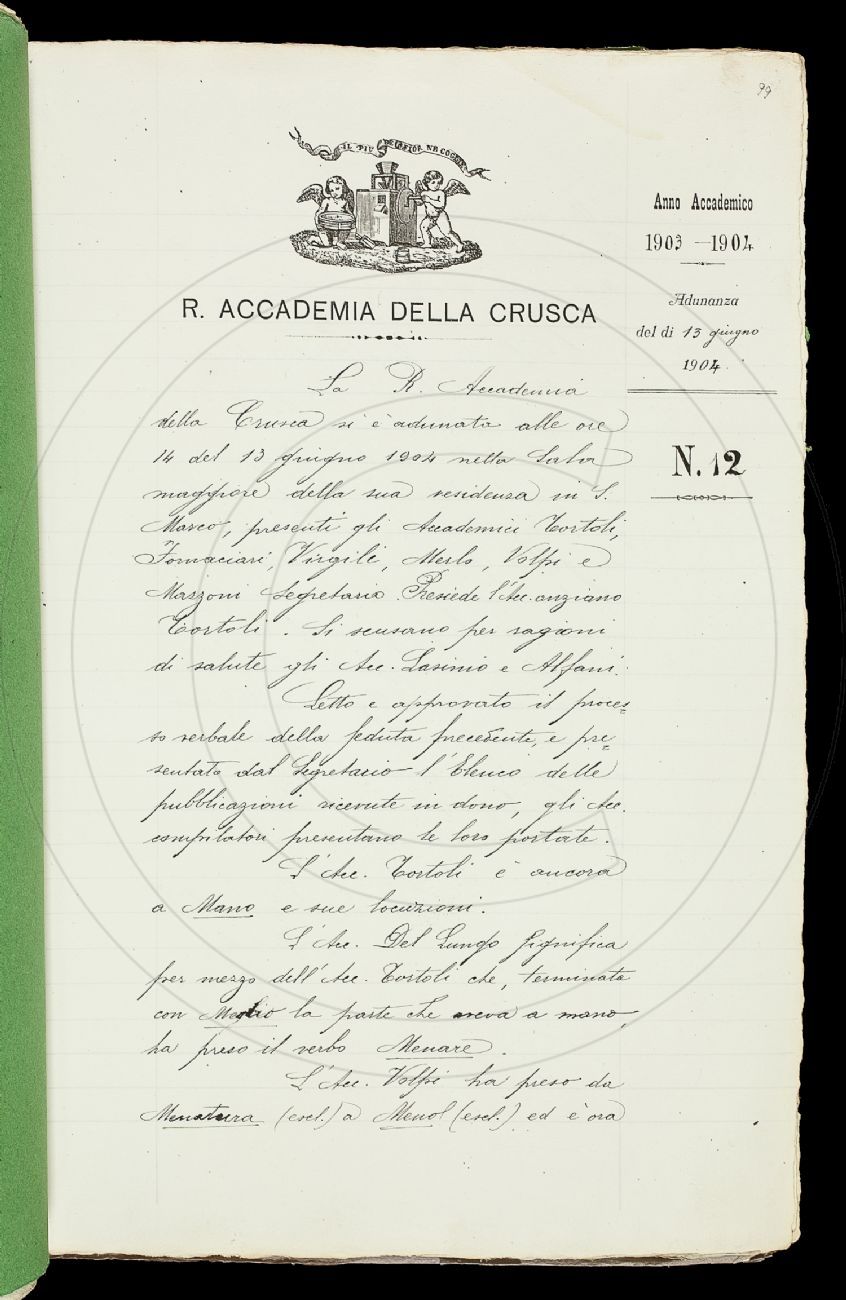 99
IL PIÙ BEL FIOR NE COGLIE
Anno Accademico
1903 — 1904
Adunanza
del dì 13 giugno
1904
N. 12
R. ACCADEMIA DELLA CRUSCA
La R. Accademia
della Crusca si è adunata alle ore
14 del 13 giugno 1904 nella Sala
maggiore della sua residenza in S.
Marco, presenti gli Accademici Tortoli,
Fornaciari, Virgili, Merlo, Volpi e
Mazzoni Segretario. Presiede l'Acc. anziano
Tortoli. Si scusano per ragioni
di salute gli Acc. Lasinio e Alfani.
Letto e approvato il proces=
so verbale della seduta precedente, e pre=
sentato dal Segretario l'Elenco delle
pubblicazioni ricevute in dono, gli Acc.
compilatori presentano le loro portate.
L'Acc. Tortoli è ancora
a Mano e sue locuzioni.
L'Acc. Del Lungo significa
per mezzo dell'Acc. Tortoli che, terminata
con Meglio la parte che aveva a mano,
ha preso il verbo Menare.
L'Acc. Volpi ha preso da
Menatura (escl.) a Menol (escl.) ed è ora